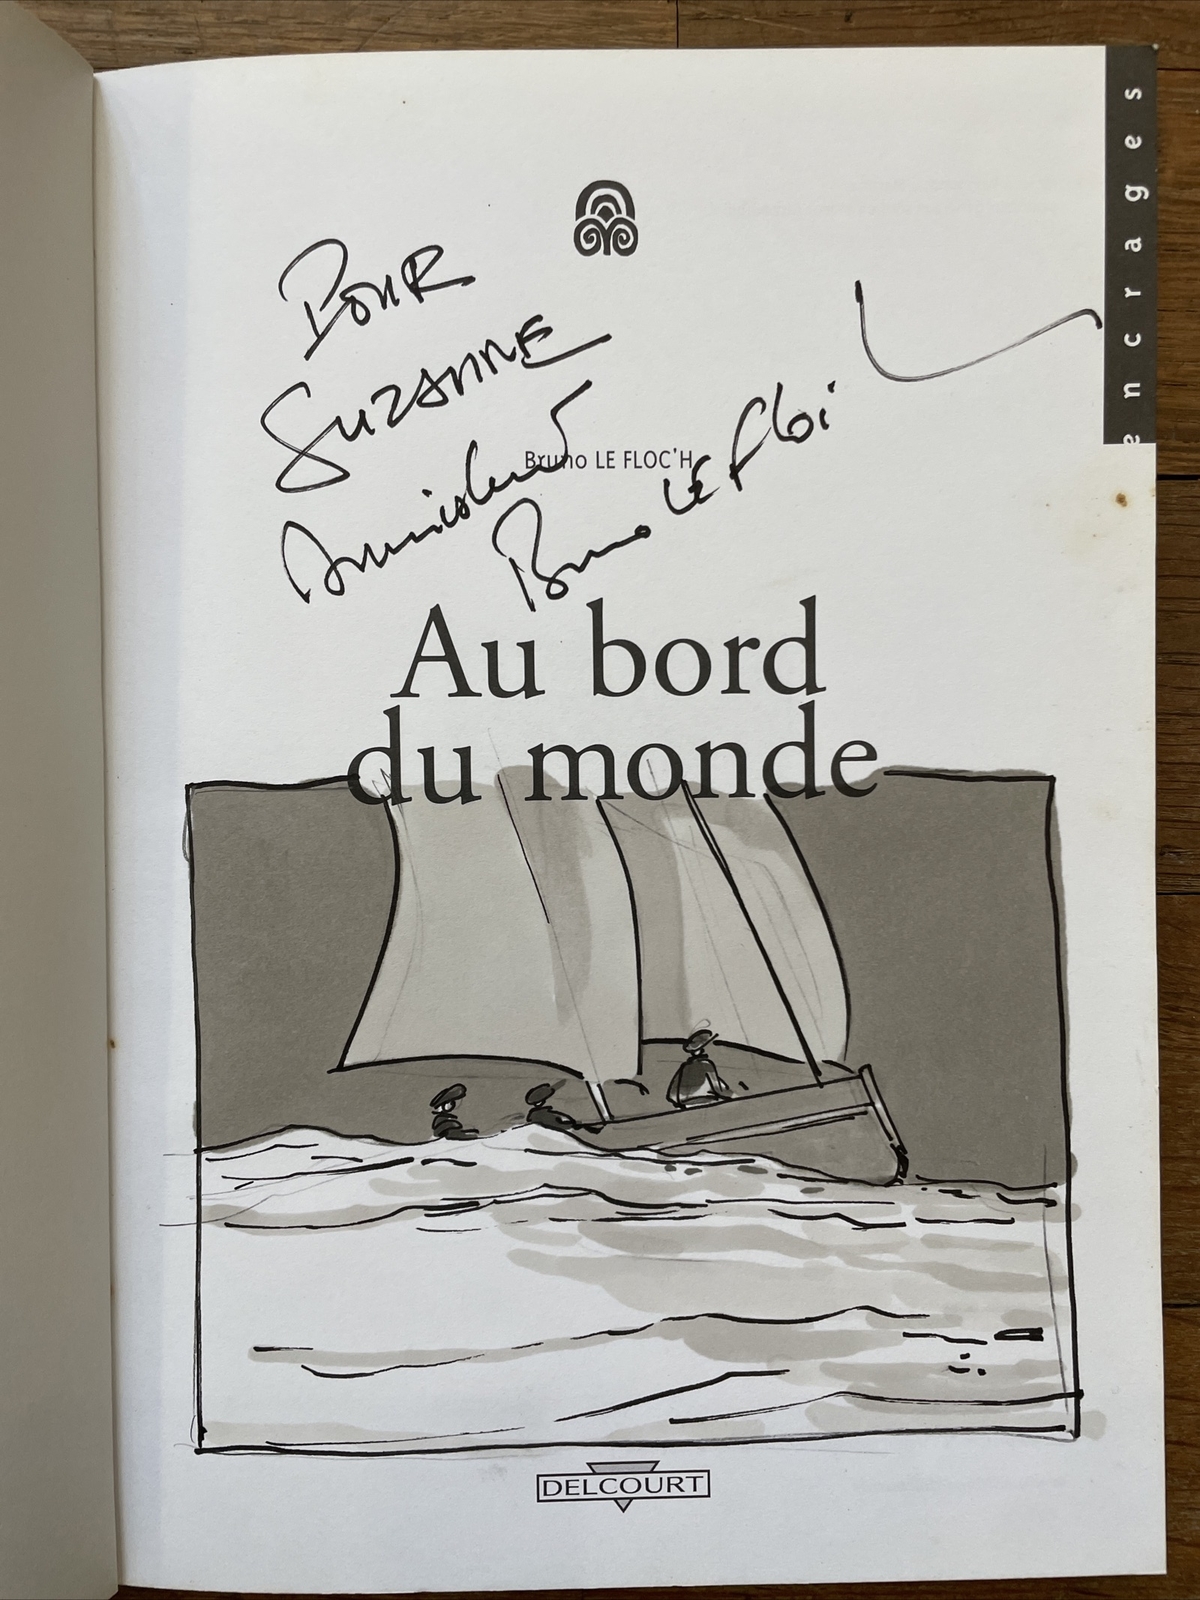 encrages
POUR
SUZANNE
Amicalement
Bruno LE FLOC'H
Bruno LE Floc'h
Au bord
du monde
DELCOURT